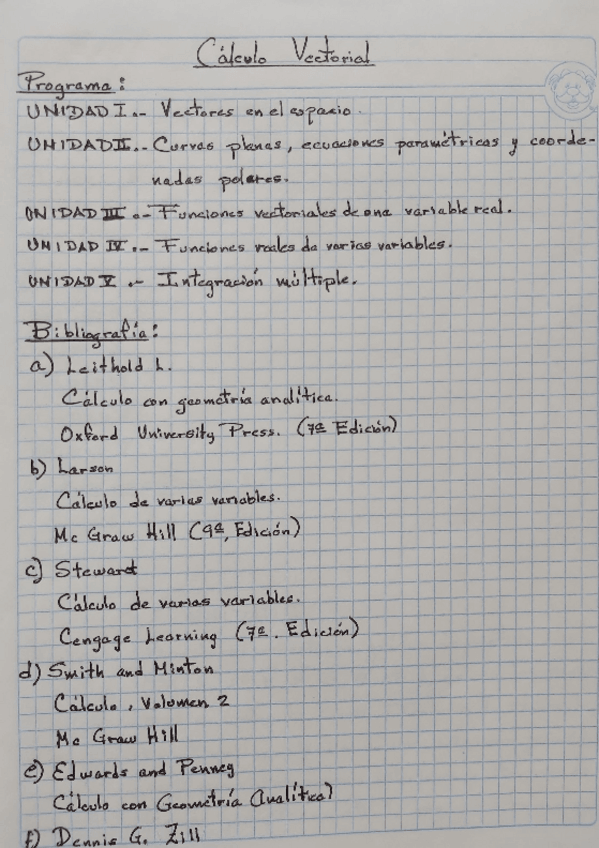 Cálculo Vectorial
Programa:
UNIDAD I.- Vectores en el espacio.
UNIDAD II.- Curvas planas, ecuaciones paramétricas y coorde-
nadas polares.
UNIDAD III.- Funciones vectoriales de una variable real.
UNIDAD IV.- Funciones reales de varias variables.
UNIDAD V.- Integración múltiple.
Bibliografía:
a) Leithold L.
Cálculo con geometría analítica.
Oxford University Press. (7ª Edición)
b) Larson
Cálculo de varias variables.
Mc Graw Hill (9ª, Edición)
c) Steward
Cálculo de varias variables.
Cengage Learning (7ª. Edición)
d) Smith and Minton
Cálculo, Volumen 2
Mc Graw Hill
e) Edwards and Penney
Cálculo con Geometría Analítica)
f) Dennis G. Zill